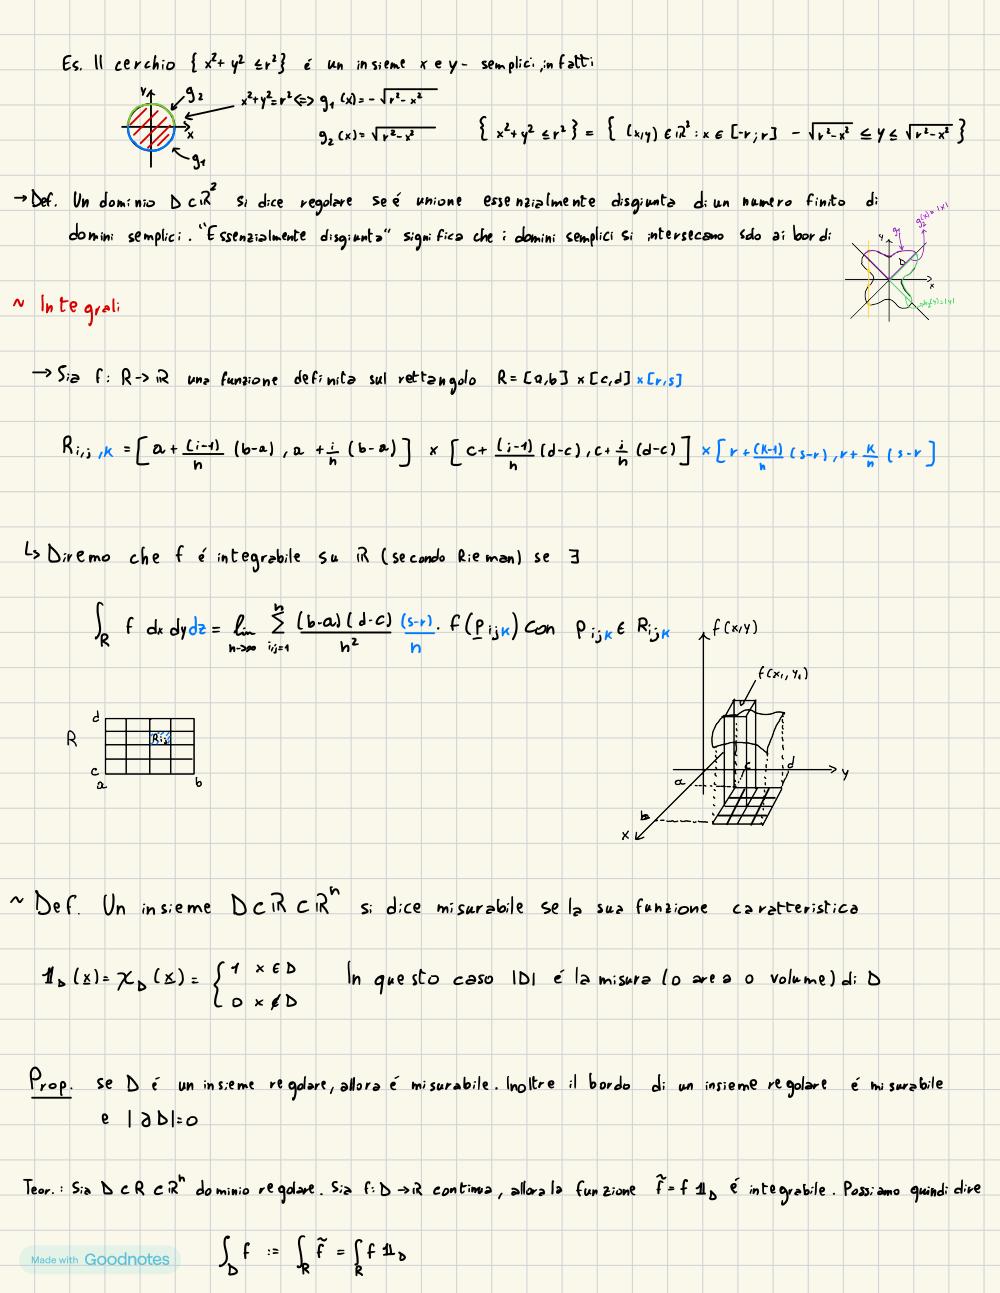 Es. Il cerchio { x²+ y² ≤ r² } é un insieme x e y - semplici, infatti
y g₂ x²+y²=r² <=> g₁ (x) = - √r²-x²
x g₁ g₂ (x) = √r²-x² { x²+y² ≤ r² } = { (x,y) ∈ ℝ² : x ∈ [-r; r] - √r²-x² ≤ y ≤ √r²-x² }
→ Def. Un dominio D ⊂ ℝ² si dice regolare se é unione essenzialmente disgiunta di un numero finito di
domini semplici. "Essenzialmente disgiunta" significa che i domini semplici si intersecano solo ai bordi
y D x
~ Integrali
→ Sia f: R -> ℝ una funzione definita sul rettangolo R = [a,b] × [c,d] × [r,s]
R i,j,k = [ a + (i-1)/n (b-a), a + i/n (b-a) ] × [ c + (j-1)/n (d-c), c + j/n (d-c) ] × [ r + (k-1)/n (s-r), r + k/n (s-r ]
↳ Diremo che f é integrabile su ℝ (secondo Rieman) se ∃
∫_R f dx dy dz = lim_{n->∞} ∑_{i,j=1}^n (b-a)(d-c)/n² (s-r)/n · f(p ijk) con p ijk ∈ R ijk
f(x,y)
f(x₁, y₁)
d
R Rij
c
a b
c d y
a
b
x
~ Def. Un insieme D ⊂ ℝ ⊂ ℝⁿ si dice misurabile se la sua funzione caratteristica
𝟙_D (x) = χ_D (x) = { 1 x ∈ D In questo caso |D| é la misura (o area o volume) di D
0 x ∉ D
Prop. se D é un insieme regolare, allora é misurabile. Inoltre il bordo di un insieme regolare é misurabile
e |∂D|=0
Teor. : Sia D ⊂ R ⊂ ℝⁿ dominio regolare. Sia f: D → ℝ continua, allora la funzione f̃ = f 𝟙_D é integrabile. Possiamo quindi dire
∫_D f := ∫_R f̃ = ∫_R f 𝟙_D
Made with Goodnotes